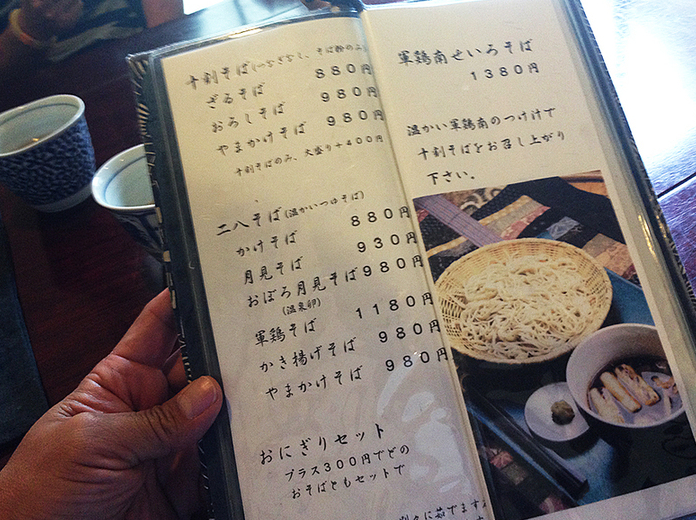 十割そば(つなぎなし、そば粉のみ)
ざるそば 880円
おろしそば 980円
やまかけそば 980円
十割そばのみ、大盛り+400円
二八そば(温かいつゆそば)
かけそば 880円
月見そば 930円
おぼろ月見そば 980円
(温泉卵)
軍鶏そば 1180円
かき揚げそば 980円
やまかけそば 980円
おにぎりセット
プラス300円でどの
おそばともセットで
軍鶏南せいろそば
1380円
温かい軍鶏南のつけ汁で
十割そばをお召し上がり
下さい。